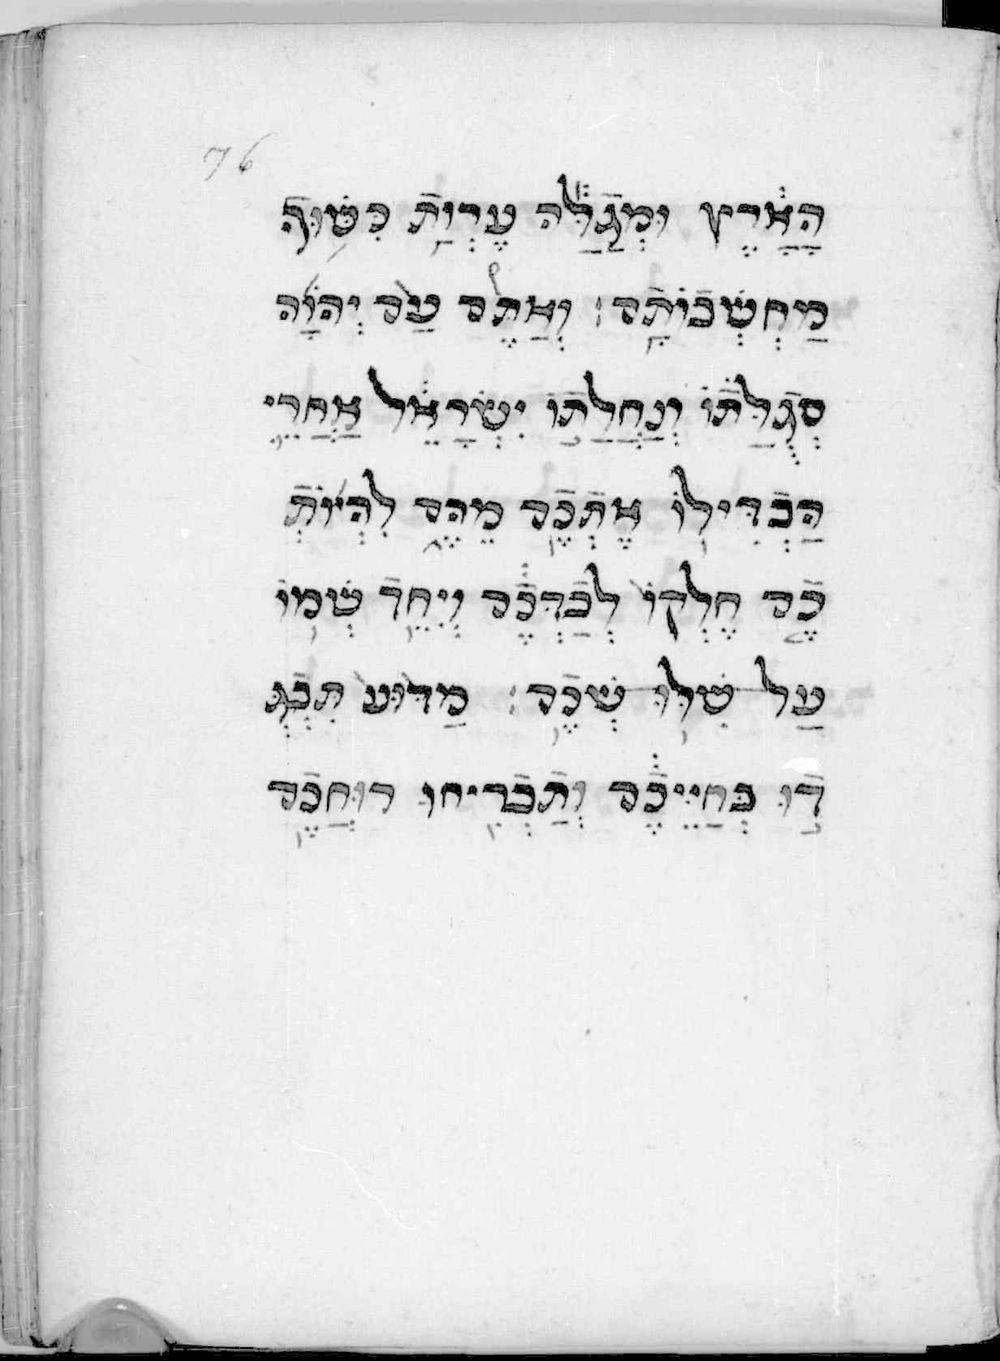 76
הָאָרֶץ וּמְגַלֵּה עֶרְוַת כִּשּׁוּף
מַחְשְׁבוֹתָם׃ וְאַתֶּם עַם יְהוָה
סְגֻלָּתוֹ וְנַחֲלָתוֹ יִשְׂרָאֵל אַחֲרֵי
הַבְדִּילוֹ אֶתְכֶם מֵהֶם לִהְיוֹת
כֶּם חֶלְקוֹ לְבַדְּכֶם וְיִחֵד שְׁמוֹ
עַל שִׁלּוּ שְׁכֶם׃ מַדּוּעַ תִּבְגְּ
דוּ בְּחַיֵּיכֶם וְתַבְרִיחוּ רוּחֲכֶם